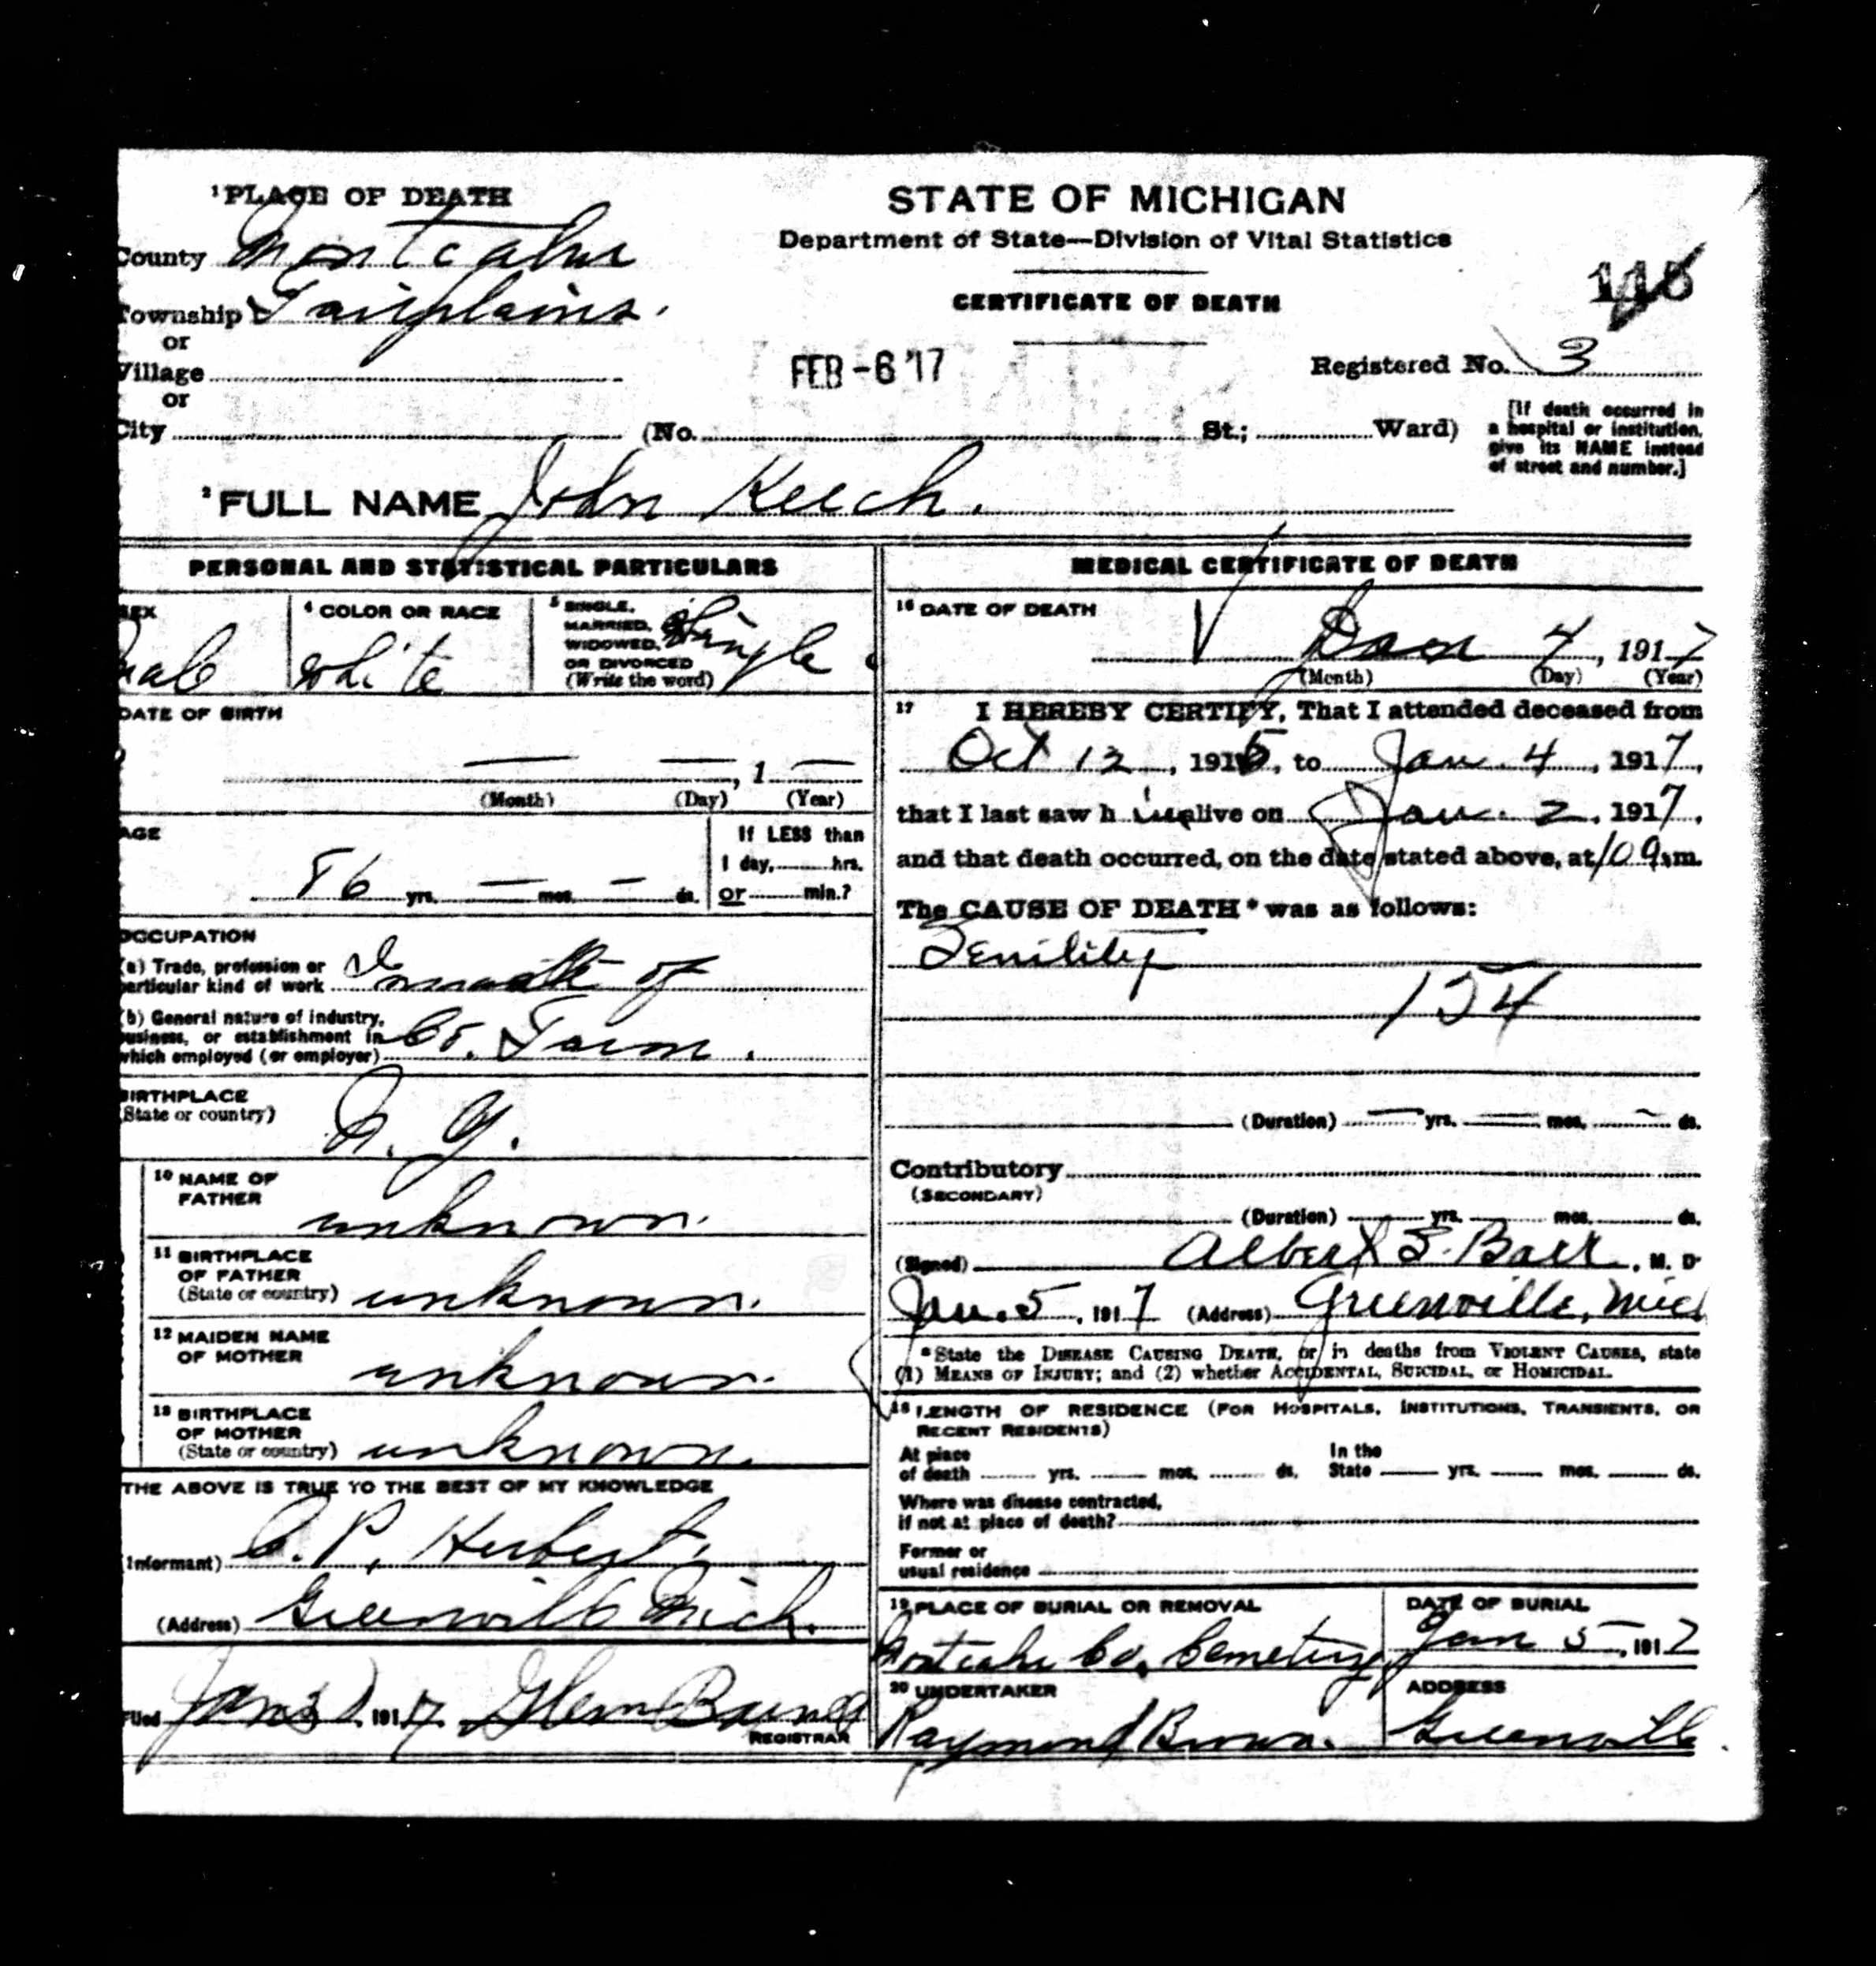 1 PLACE OF DEATH
County Montcalm
Township Fairplains.
or
Village
or
City (No. St.; Ward)
STATE OF MICHIGAN
Department of State—Division of Vital Statistics
CERTIFICATE OF DEATH
FEB -6 '17
Registered No. 3
[If death occurred in
a hospital or institution,
give its NAME instead
of street and number.]
2 FULL NAME John Keech.
PERSONAL AND STATISTICAL PARTICULARS
SEX
male
4 COLOR OR RACE
White
5 SINGLE,
MARRIED,
WIDOWED,
OR DIVORCED
(Write the word)
Single
DATE OF BIRTH
— — , 1 —
(Month) (Day) (Year)
AGE
86 yrs. — mos. — ds.
If LESS than
1 day, hrs.
or min.?
OCCUPATION
(a) Trade, profession or
particular kind of work Inmate of
(b) General nature of industry,
business, or establishment in
which employed (or employer) Co. Farm.
BIRTHPLACE
(State or country)
N. Y.
10 NAME OF
FATHER
unknown.
11 BIRTHPLACE
OF FATHER
(State or country) unknown.
12 MAIDEN NAME
OF MOTHER
unknown.
13 BIRTHPLACE
OF MOTHER
(State or country) unknown.
THE ABOVE IS TRUE TO THE BEST OF MY KNOWLEDGE
(Informant) C. P. Herbert,
(Address) Greenville Mich.
Filed Jan 1917 Glenn
REGISTRAR
MEDICAL CERTIFICATE OF DEATH
16 DATE OF DEATH
Jan 4, 1917
(Month) (Day) (Year)
17 I HEREBY CERTIFY, That I attended deceased from
Oct 12, 1915, to Jan. 4, 1917,
that I last saw h im alive on Jan. 2, 1917,
and that death occurred, on the date stated above, at 10 a. m.
The CAUSE OF DEATH* was as follows:
Senility
154
(Duration) — yrs. — mos. — ds.
Contributory
(SECONDARY)
(Duration) yrs. mos. ds.
(Signed) Albert , M. D
Jan. 5, 1917 (Address) Greenville, Mich
*State the DISEASE CAUSING DEATH, or in deaths from VIOLENT CAUSES, state
(1) MEANS OF INJURY; and (2) whether ACCIDENTAL, SUICIDAL, or HOMICIDAL.
18 LENGTH OF RESIDENCE (FOR HOSPITALS, INSTITUTIONS, TRANSIENTS, OR
RECENT RESIDENTS)
At place
of death yrs. mos. ds.
In the
State yrs. mos. ds.
Where was disease contracted,
if not at place of death?
Former or
usual residence
19 PLACE OF BURIAL OR REMOVAL
Montcalm Co. Cemetery
DATE OF BURIAL
Jan 5, 1917
20 UNDERTAKER
Raymond Brown.
ADDRESS
Greenville.